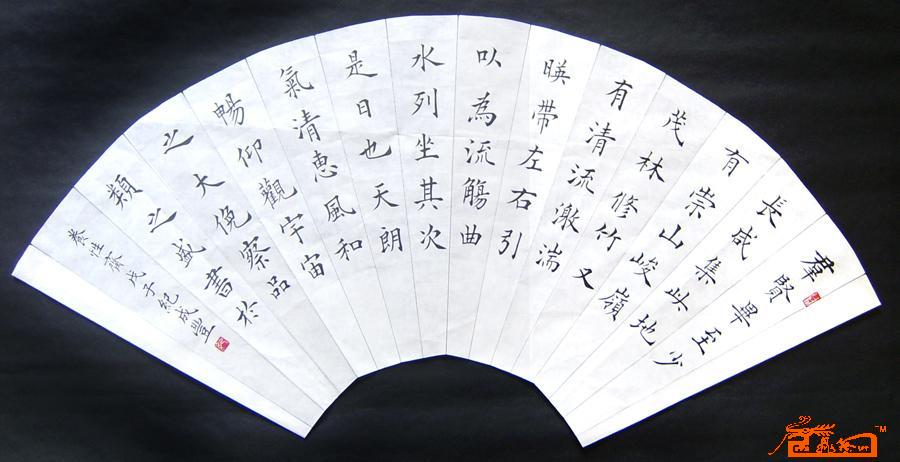 羣賢畢至少
長咸集此地
有崇山峻嶺
茂林修竹又
有清流激湍
暎带左右引
㕥為流觴曲
水列坐其次
是日也天朗
氣清恵風和
暢仰觀宇宙
之大俛察品
類之盛書於
養性齋戊子紀成豐